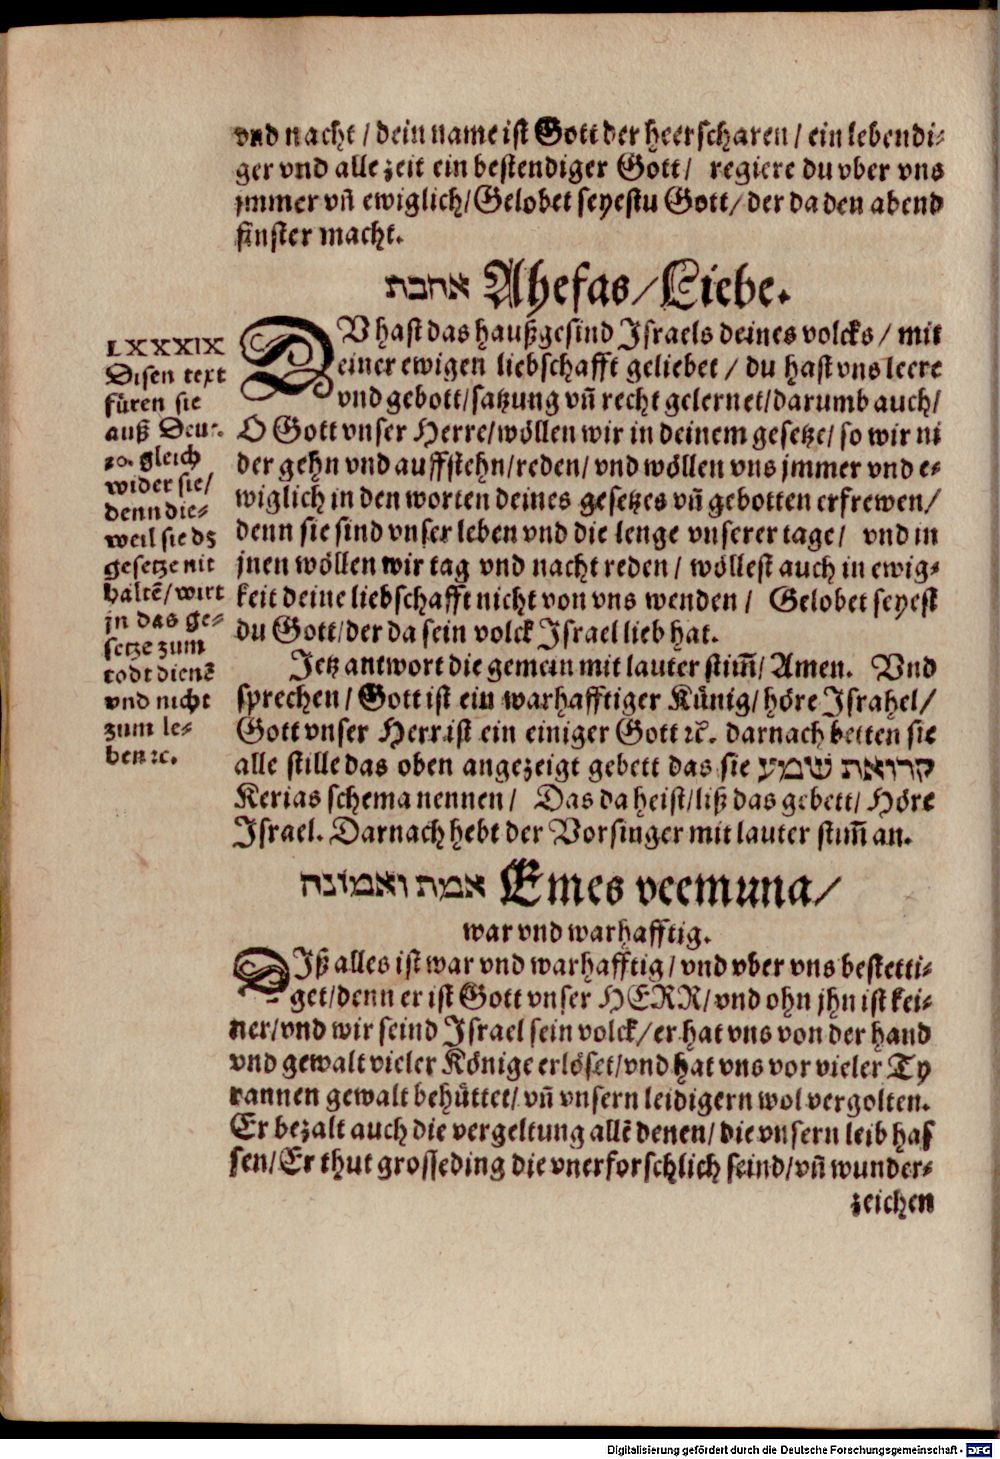 vnd nacht / dein name ist Gott der heerscharen / ein lebendi-
ger vnd alle zeit ein bestendiger Gott / regiere du vber vns
jmmer vn̄ ewiglich / Gelobet seyestu Gott / der da den abend
finster macht.
אהבת Ahefas / Liebe.
DV hast das haußgesind Israels deines volcks / mit
deiner ewigen liebschafft geliebet / du hast vns leere
vnd gebott / satzung vn̄ recht gelernet / darumb auch /
O Gott vnser Herre / wöllen wir in deinem gesetze / so wir ni
der gehn vnd auffstehn / reden / vnd wöllen vns jmmer vnd e-
wiglich in den worten deines gesetzes vn̄ gebotten erfrewen /
denn sie sind vnser leben vnd die lenge vnserer tage / vnd in
jnen wöllen wir tag vnd nacht reden / wöllest auch in ewig-
keit deine liebschafft nicht von vns wenden / Gelobet seyest
du Gott / der da sein volck Israel lieb hat.
LXXXIX
Disen text
füren sie
auß Deut.
30. gleich
wider sie /
denn die-
weil sie dz
gesetze nit
haltē / wirt
jn das ge-
setze zum
todt dienē
vnd nicht
zum le-
ben ꝛc.
Jetz antwort die gemein mit lauter stim̄ / Amen. Vnd
sprechen / Gott ist ein warhafftiger Künig / höre Israhel /
Gott vnser Herr ist ein einiger Gott ꝛc. darnach betten sie
alle stille das oben angezeigt gebett das sie קרואת שמע
Kerias schema nennen / Das da heist / liß das gebett / Höre
Israel. Darnach hebt der Vorsinger mit lauter stim̄ an.
אמת ואמונה Emes veemuna /
war vnd warhafftig.
DIß alles ist war vnd warhafftig / vnd vber vns bestetti-
get / denn er ist Gott vnser HERR / vnd ohn jhn ist kei-
ner / vnd wir seind Israel sein volck / er hat vns von der hand
vnd gewalt vieler Könige erlöset / vnd hat vns vor vieler Ty
rannen gewalt behüttet / vn̄ vnsern leidigern wol vergolten.
Er bezalt auch die vergeltung allē denen / die vnsern leib has
sen / Er thut grosse ding die vnerforschlich seind / vn̄ wunder-
zeichen
Digitalisierung gefördert durch die Deutsche Forschungsgemeinschaft - DFG